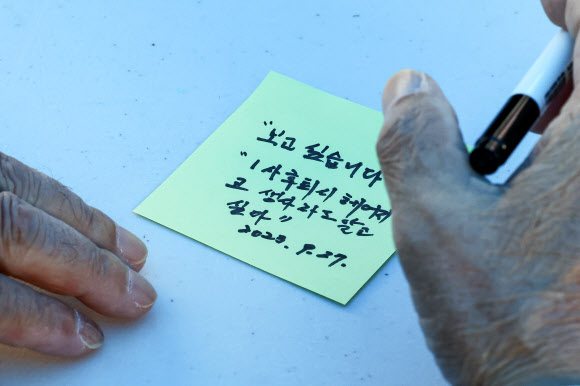 "보고 싶습니다
"1사후퇴시 헤어지
고 생사라도 알고
싶다"
2023. 9.27.